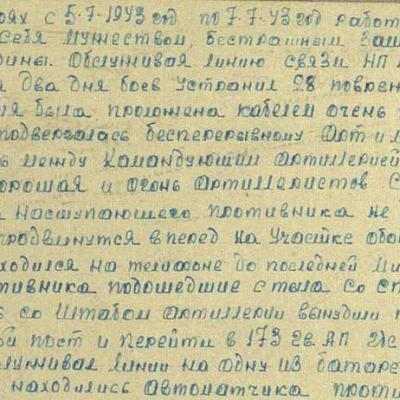 оях с 5-7-1943 год по 7-7-43 год работ
себя мужеством, бесстрашным защ
дины. Обслуживая линию связи НП
а два дня боев устранил 28 поврен
ия была проложена кабелем очень
подвергалась бесперерывному арт и м
ь между Командующим артиллерией
орошая и огонь артиллеристов с
а наступающего противника не
продвинутся в перед на участке обо
ходился на телефоне до последней ми
тивника подошедшие с тыла со сп
ь со штабом артиллерии вынудили п
ой пост и перейти в 173 гв. АП где
луживал линии на одну из батаре
находились автоматчика проти